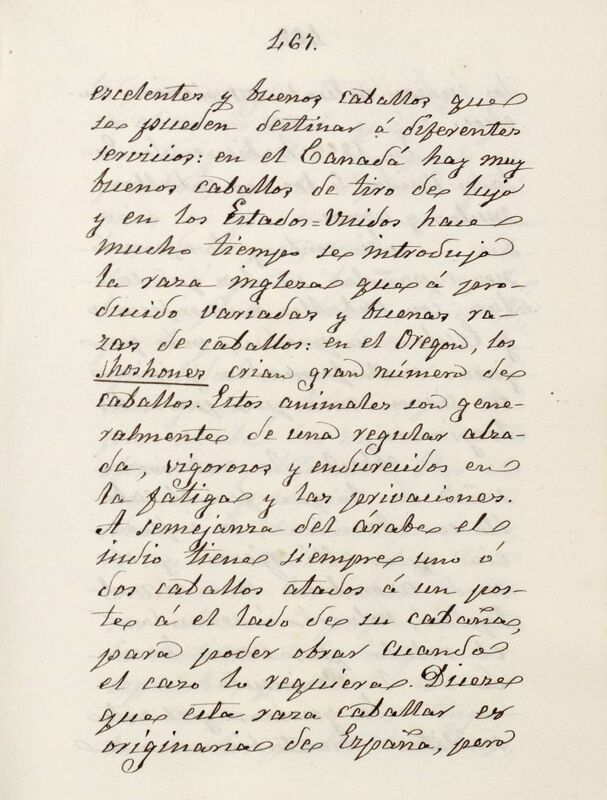 467.
escelentes y buenos caballos que
se pueden destinar á diferentes
servicios: en el Canadá hay muy
buenos caballos de tiro de lujo
y en los Estados=Unidos hace
mucho tiempo se introdujo
la raza inglesa que á pro-
ducido variadas y buenas ra-
zas de caballos: en el Oregon, los
shoshones crian gran número de
caballos. Estos animales son gene-
ralmente de una regular alza-
da, vigorosos y endurecidos en
la fatiga y las privaciones.
A semejanza del árabe el
indio tiene siempre uno ó
dos caballos atados á un pos-
te á el lado de su cabaña,
para poder obrar cuando
el caso lo requiera. Dicese
que esta raza caballar es
originaria de España, pero